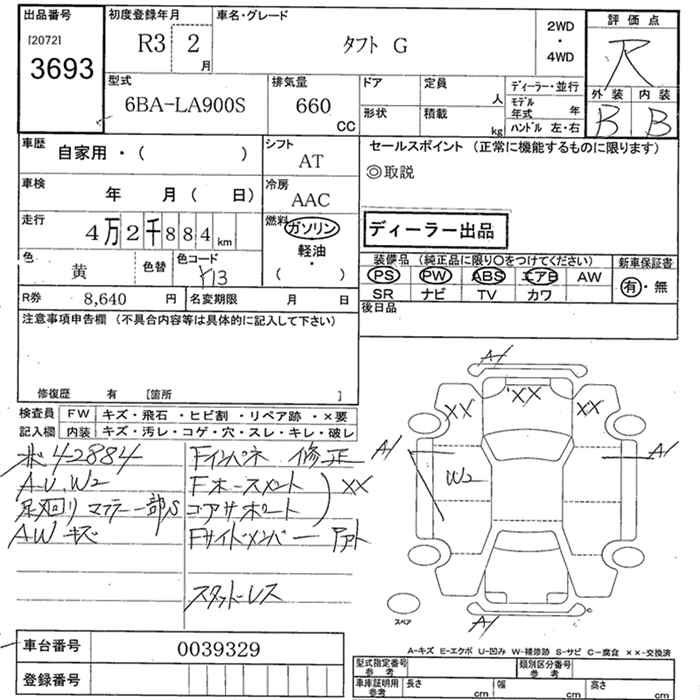 出品番号
[2072]
3693
初度登録年月
R3 2
月
車名・グレード
タフト G
2WD
・
4WD
評価点
R
外装 内装
B B
型式
6BA-LA900S
排気量
660
CC
ドア
形状
定員
人
積載
kg
ディーラー・並行
モデル
年式 年
ハンドル 左・右
車歴
自家用・( )
シフト
AT
車検
年 月( 日)
冷房
AAC
走行
4万2千884km
燃料
ガソリン
軽油
( ・ )
色
黄
色替
色コード
Y13
R券 8,640 円
名変期限 月 日
セールスポイント (正常に機能するものに限ります)
◎取説
ディーラー出品
装備品 (純正品に限り○をつけてください)
PS PW ABS エアB AW
SR ナビ TV カワ
新車保証書
有・無
後日品
注意事項申告欄 (不具合内容等は具体的に記入して下さい)
修復歴 有 [箇所 ]
検査員
記入欄
FW キズ・飛石・ヒビ割・リペア跡・×要
内装 キズ・汚レ・コゲ・穴・スレ・キレ・破レ
42884
A.U.W2
足廻り マフラー一部S
AWキズ
Fインパネ 修正
Fホースメント
コアサポート
XX
Fサイドメンバー
スタットレス
A1
XX
XX
XX
A1
A1
W2
A1
スペア
A-キズ E-エクボ U-凹み W-補修跡 S-サビ C-腐食 ××-交換済
車台番号 0039329
登録番号
型式指定番号
参考
類別区分番号
参考
車庫証明用
参考
長さ cm
幅 cm
高さ cm